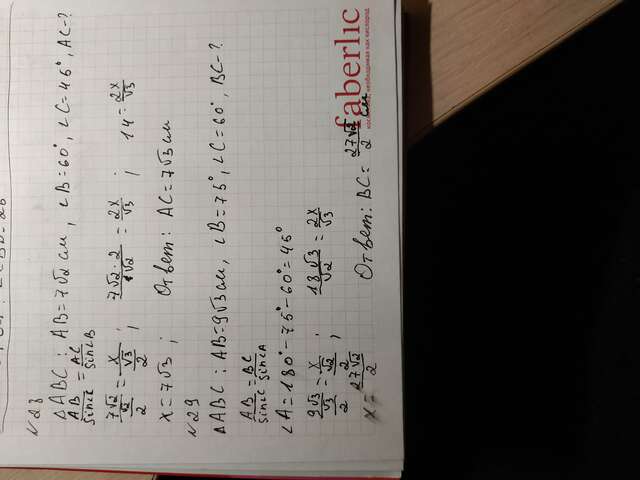 №28
△ABC : AB=7√2 см, ∠B=60°, ∠C=45°, AC-?
AB/sin∠C = AC/sin∠B
7√2/(√2/2) = x/(√3/2) ; 7√2·2/√2 = 2x/√3 ; 14 = 2x/√3
x=7√3 ; Ответ: AC=7√3 см
№29
△ABC : AB=9√3 см, ∠B=75°, ∠C=60°, BC-?
AB/sin∠C = BC/sin∠A
∠A=180°-75°-60°=45°
9√3/(√3/2) = x/(√2/2) ; 18√3/√2 = 2x/√3
x= 27√2/2 Ответ: BC= 27√2/2 см
faberlic
косметика, необходимая как кислород